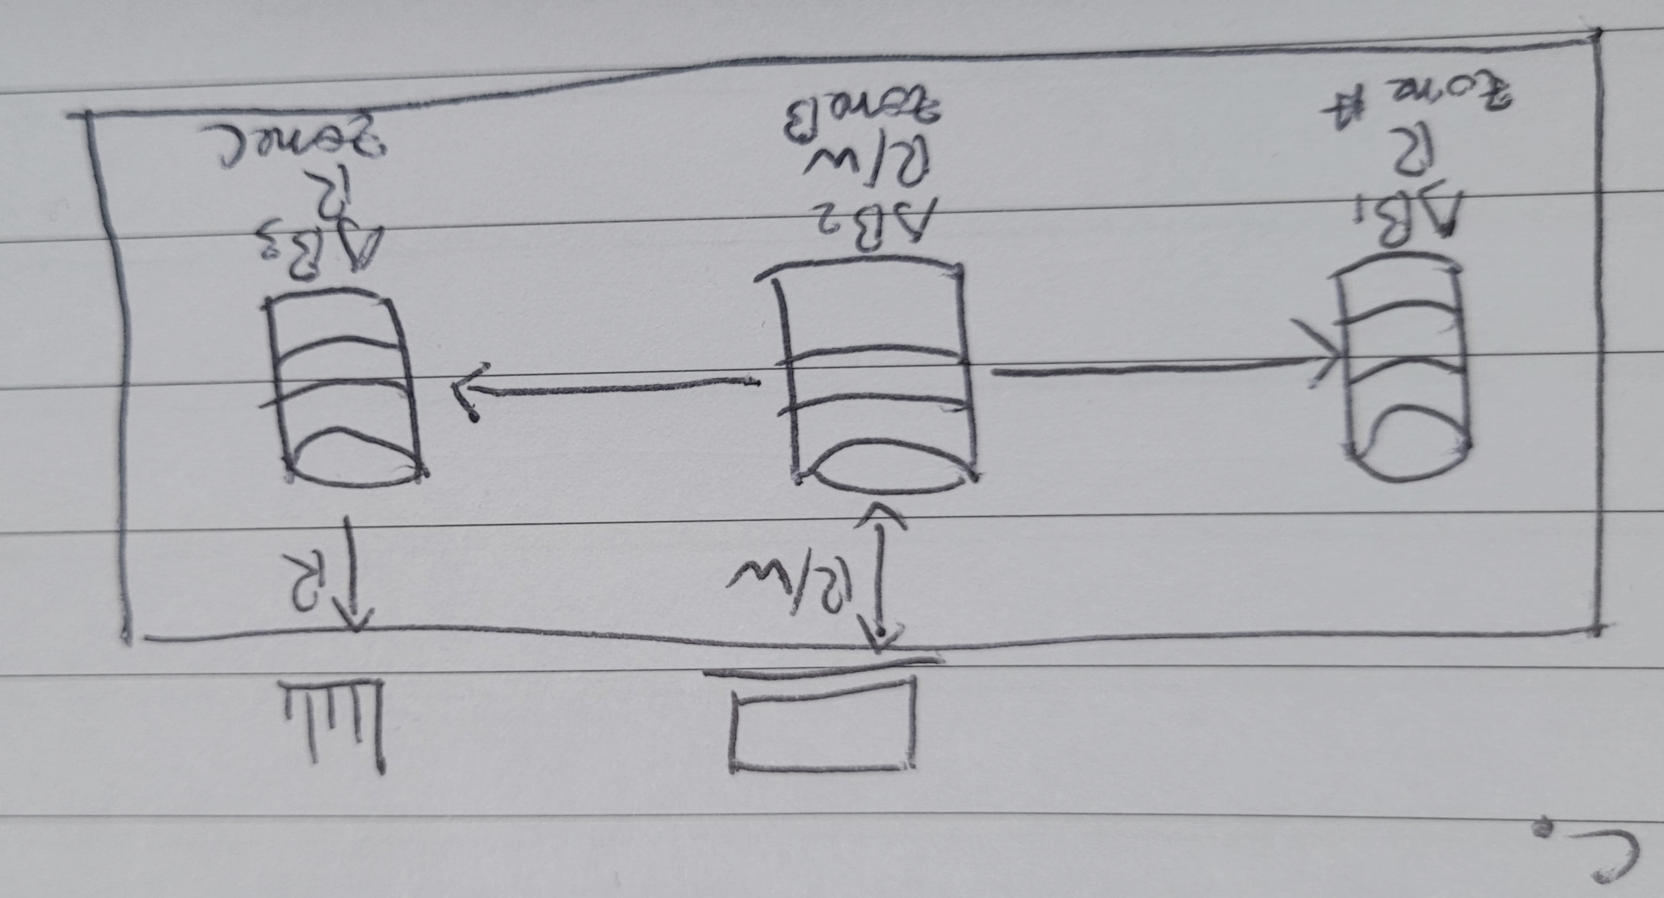 C.
R/W
R
DB1
R
Zone A
DB2
R/W
Zone B
DB3
R
Zone C